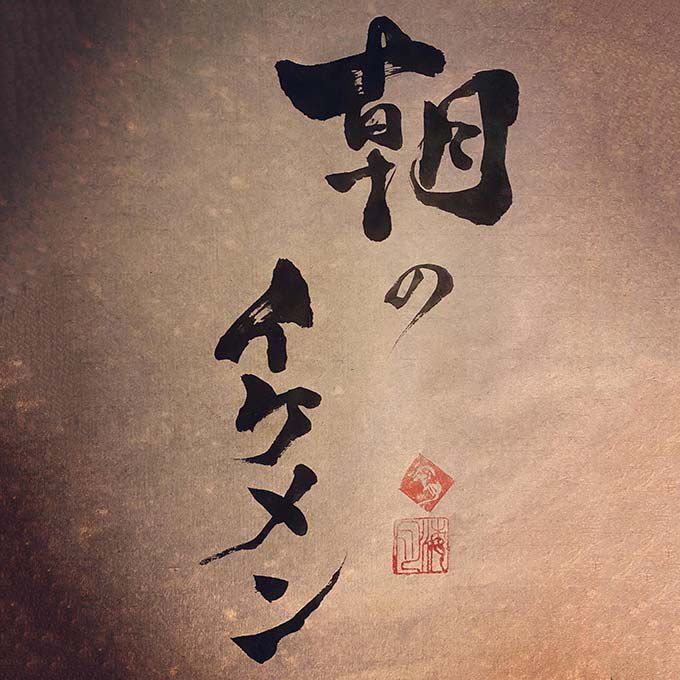 朝の
イケメン